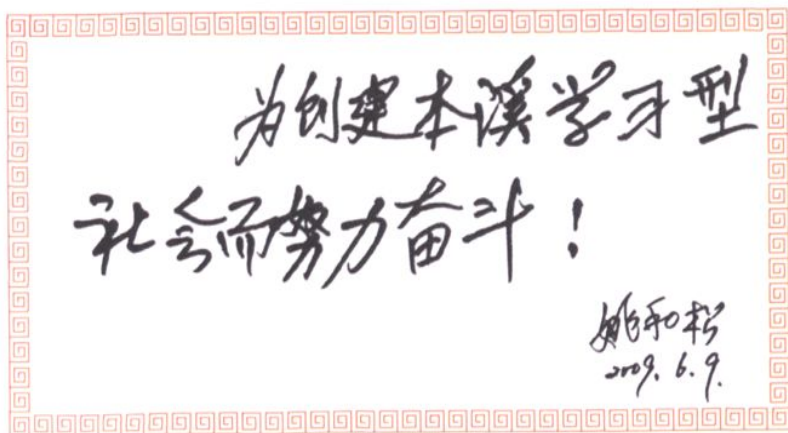 为创建本溪学习型
社会而努力奋斗！
姚和松
2009.6.9.